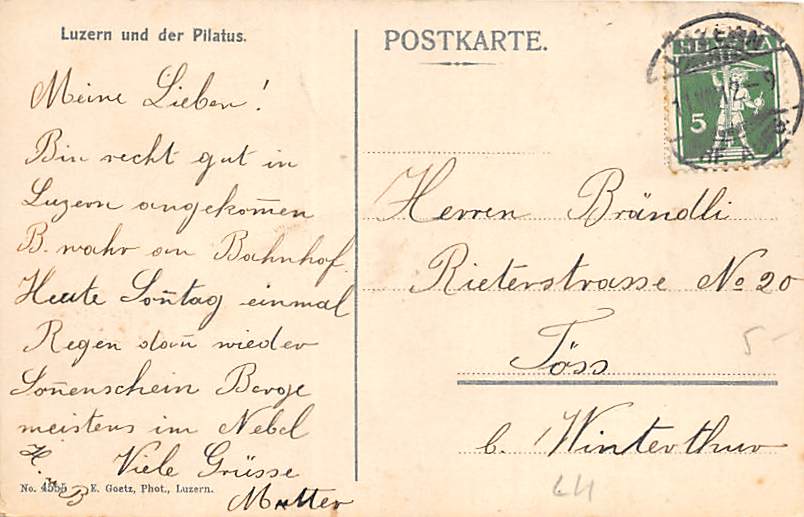 Luzern und der Pilatus.
Meine Lieben!
Bin recht gut in
Luzern angekom̄en
B. wahr am Bahnhof.
Heute Son̄tag einmal
Regen dan̄ wieder
Son̄enschein Berge
meistens im Nebel
Viele Grüsse
Mutter
No. 4555 E. Goetz, Phot., Luzern.
POSTKARTE.
LUZERN
5
Herren Brändli
Rieterstrasse No 20
Töss
b. Winterthur
5-